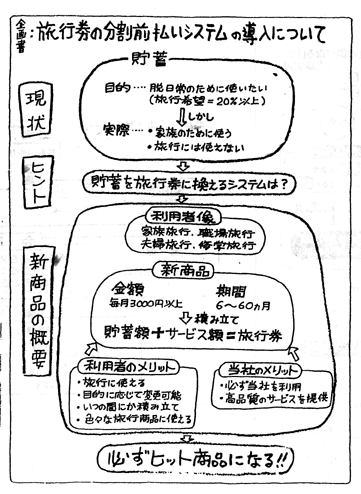 企画書:旅行券の分割前払いシステムの導入について
現状
貯蓄
目的‥‥脱日常のために使いたい
(旅行希望=20%以上)
しかし
実際‥‥・家族のために使う
・旅行には使えない
ヒント
貯蓄を旅行券に換えるシステムは?
新商品の概要
利用者像
家族旅行、職場旅行
夫婦旅行、修学旅行
新商品
金額 期間
毎月3000円以上 6〜60ヵ月
積み立て
貯蓄額+サービス額=旅行券
利用者のメリット
・旅行に使える
・目的に応じて変更可能
・いつの間にか積み立て
・色々な旅行商品に使える
当社のメリット
・必ず当社を利用
・高品質のサービスを提供
必ずヒット商品になる!!